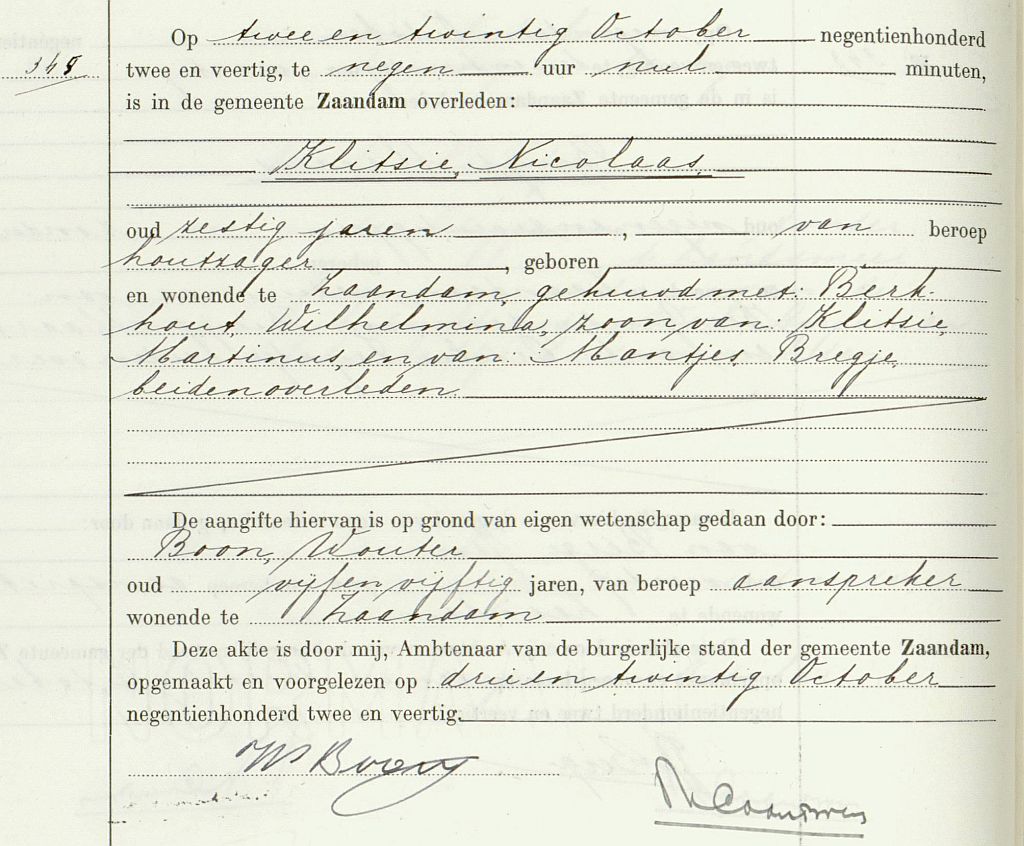 Op twee en twintig October negentienhonderd
348
twee en veertig, te negen uur nul minuten,
is in de gemeente Zaandam overleden:
Klitsie, Nicolaas,
oud zestig jaren, van beroep
houtzager, geboren
en wonende te Zaandam, gehuwd met: Berk-
hout, Wilhelmina, zoon van: Klitsie,
Martinus, en van: Mantjes, Bregje,
beiden overleden.
De aangifte hiervan is op grond van eigen wetenschap gedaan door:
Boon, Wouter
oud vijf en vijftig jaren, van beroep aanspreker
wonende te Zaandam
Deze akte is door mij, Ambtenaar van de burgerlijke stand der gemeente Zaandam,
opgemaakt en voorgelezen op drie en twintig October
negentienhonderd twee en veertig.
W Boon